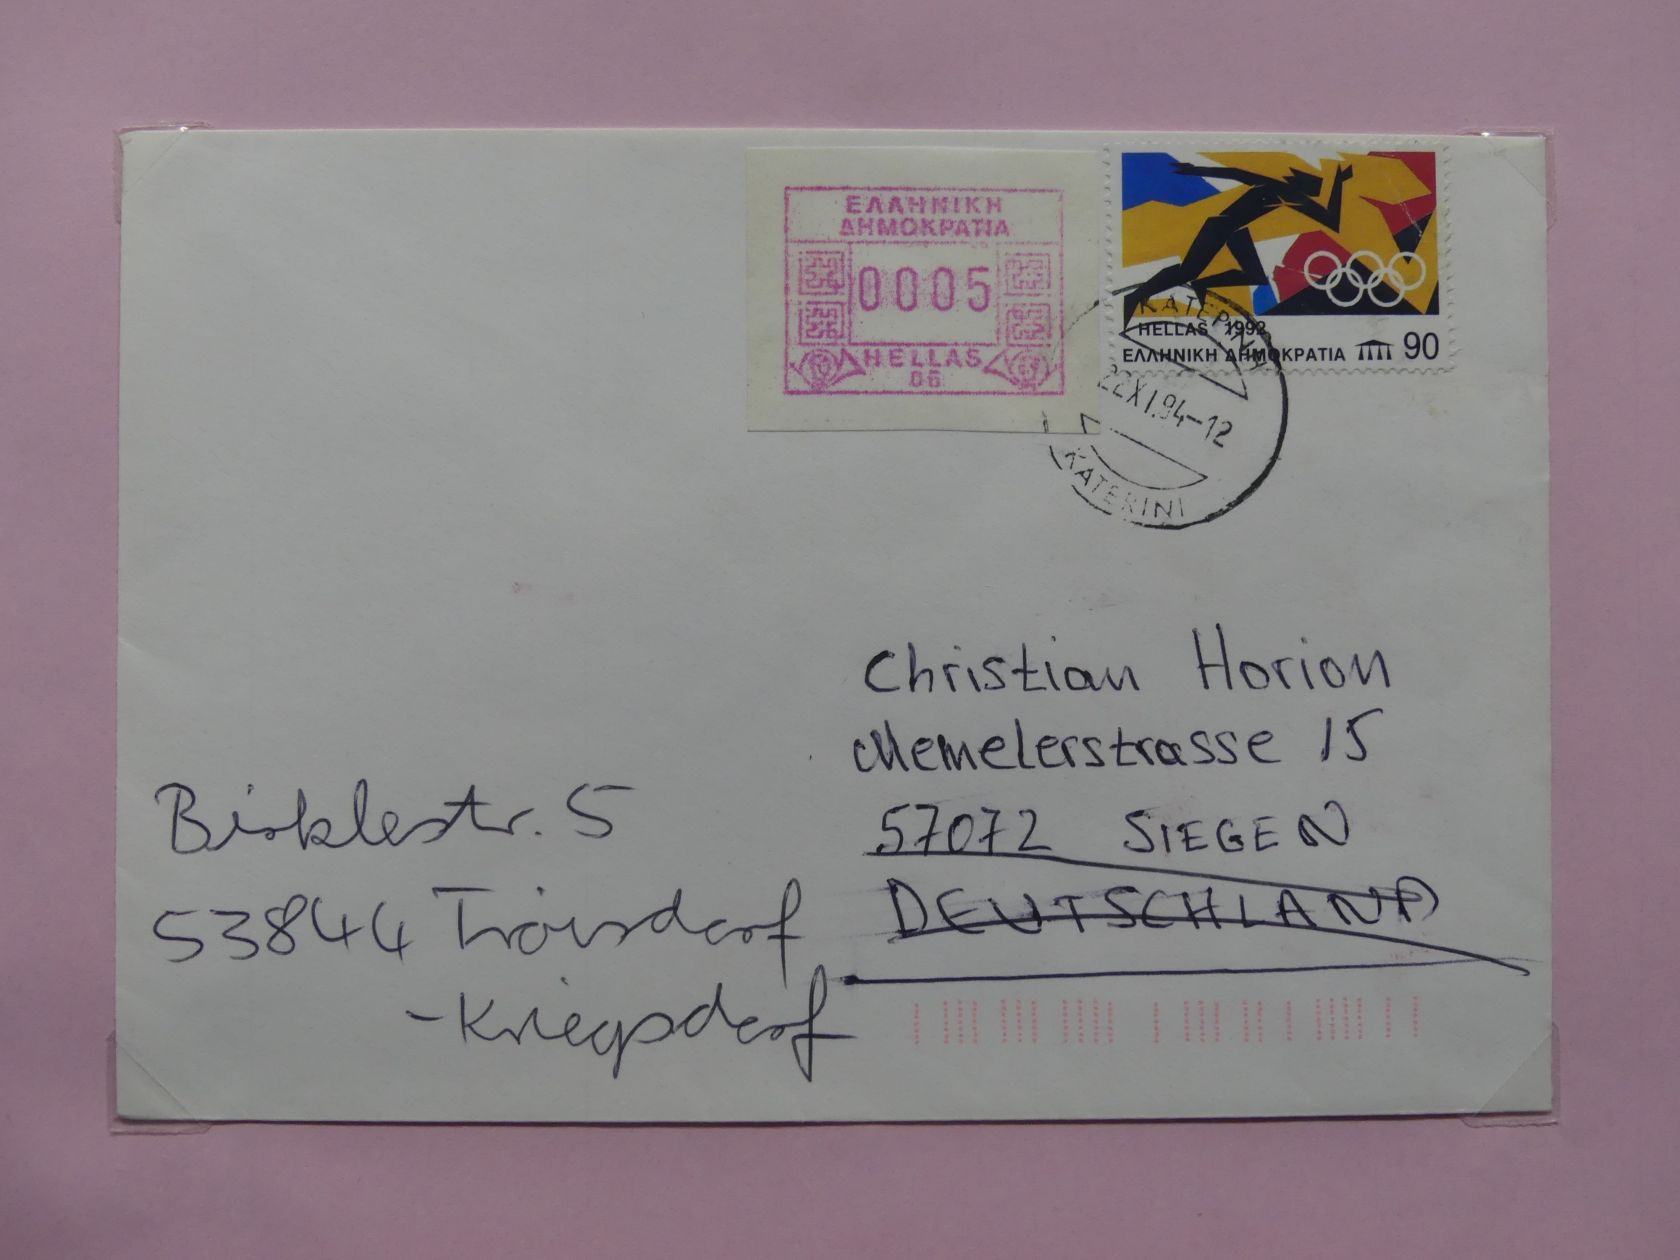 ΕΛΛΗΝΙΚΗ
ΔΗΜΟΚΡΑΤΙΑ
0005
HELLAS
06
HELLAS 1992
ΕΛΛΗΝΙΚΗ ΔΗΜΟΚΡΑΤΙΑ 90
ΚΑΤΕΡΙΝΗ
22XI.94-12
KATERINI
Christian Horion
Memelerstrasse 15
57072 SIEGEN
DEUTSCHLAND
5
53844 Troisdorf
-Kriegsdorf